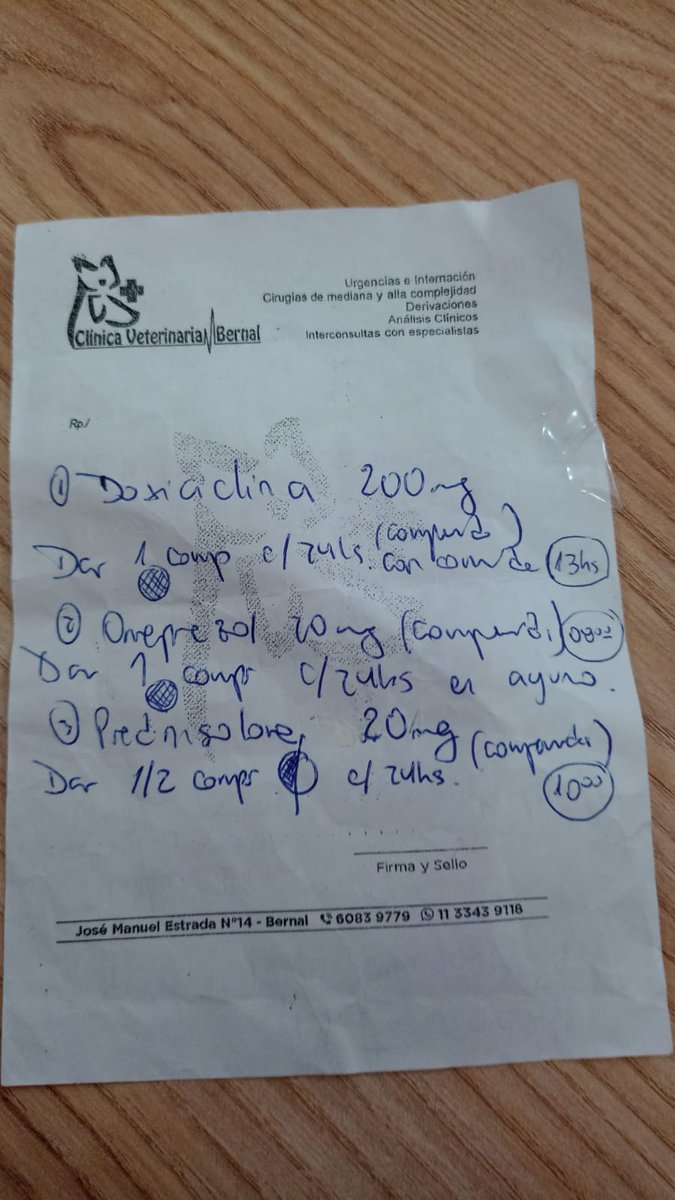 Clínica Veterinaria Bernal
Urgencias e Internación
Cirugías de mediana y alta complejidad
Derivaciones
Análisis Clínicos
Interconsultas con especialistas
Rp./
① Doxiciclina 200mg
Dar 1 comp c/24hs. con comida 13hs
② Omeprazol 20mg 08⁰⁰
Dar 1 compr c/24hs en ayuno.
③ Prednisolona 20mg
Dar 1/2 compr c/24hs. 10⁰⁰
Firma y Sello
José Manuel Estrada N°14 - Bernal 6083 9779 11 3343 9118